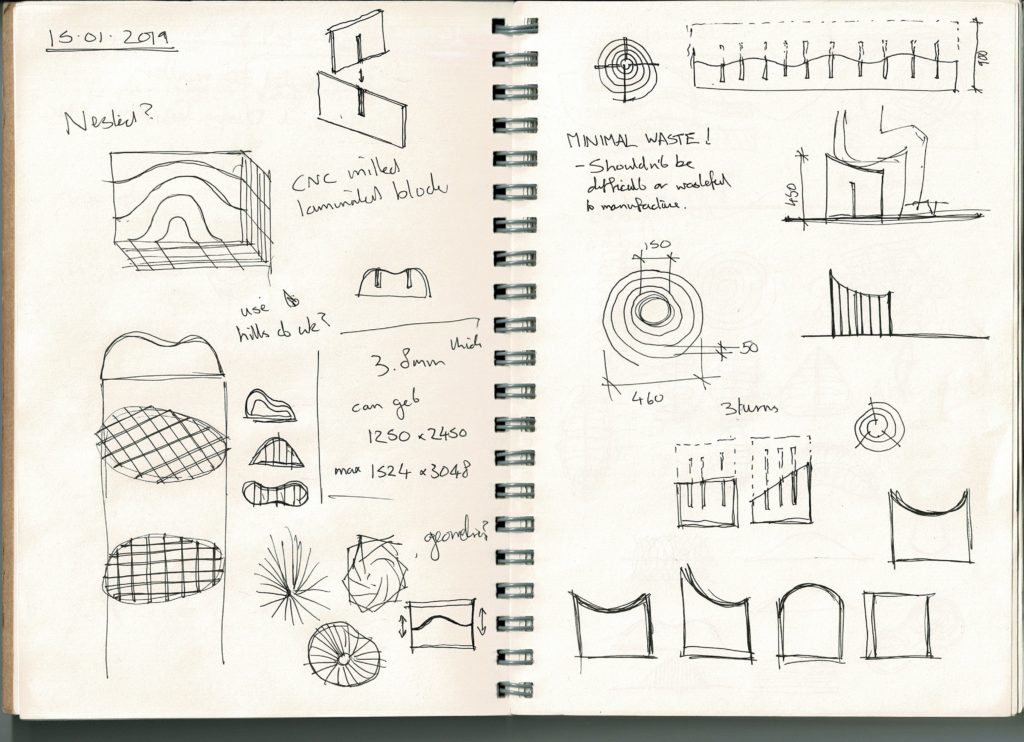 15.01.2019
Nested?
CNC milled
laminated block
use
hills do wk?
3.8mm thick
can get
1250 x 2450
max 1524 x 3048
geometries?
900
MINIMAL WASTE!
- Shouldn't be
difficult or wasteful
to manufacture.
450
150
50
460
3 turns